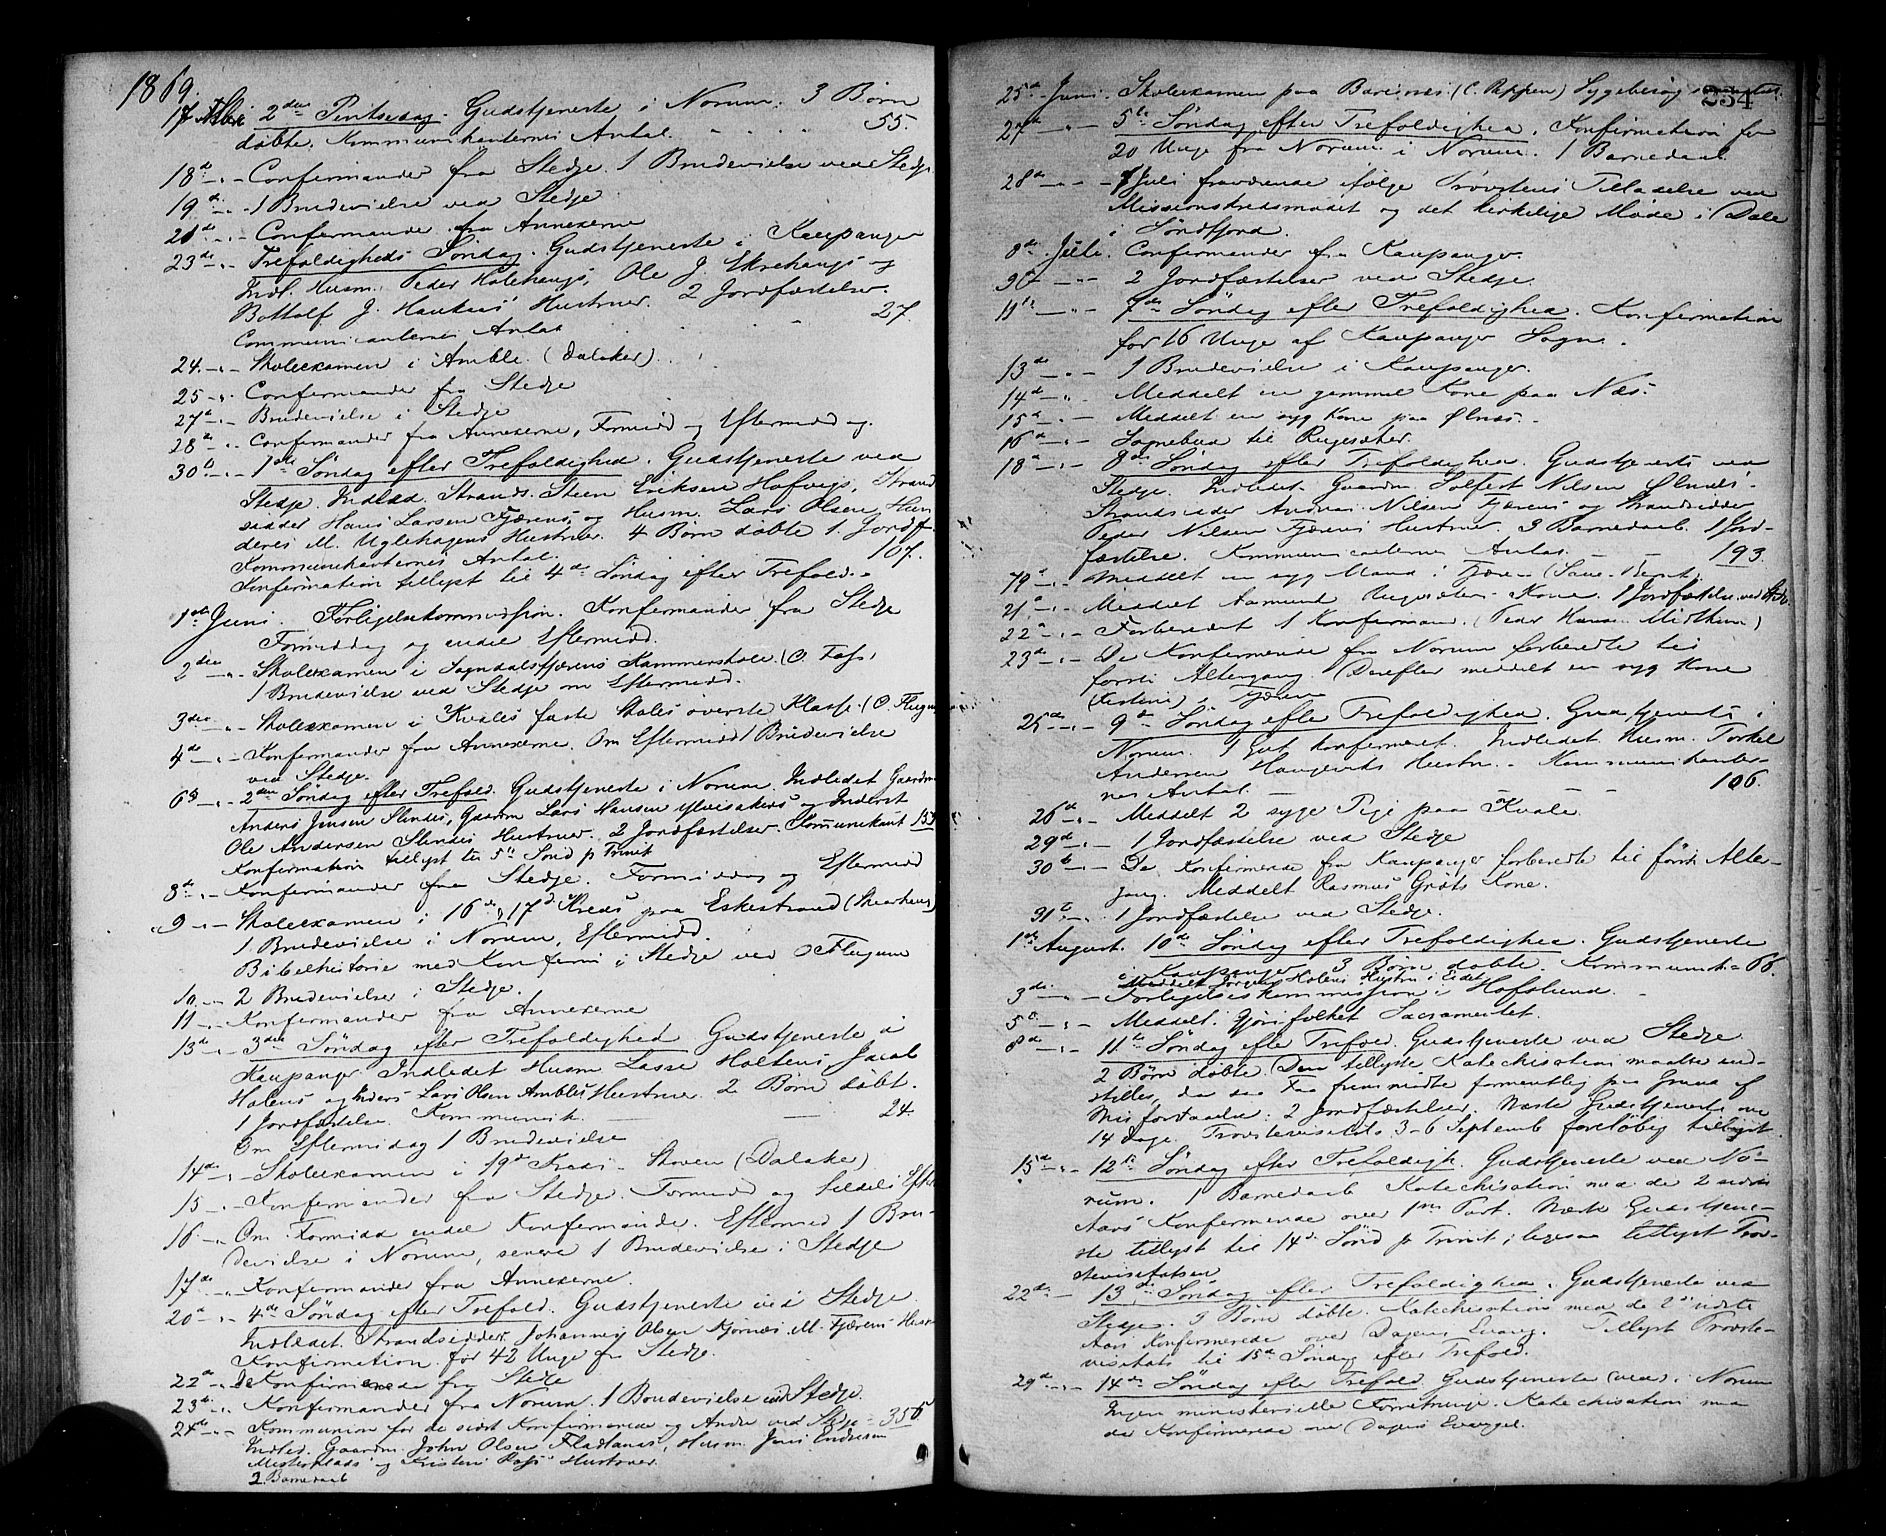 1869.
17 Mai 2den Pintsedag. Gudstjeneste i Norum. 3 Børn
døbte. Kommunikanternes Antal. 55.
18de -"- Confirmander fra Stedje. 1 Brudevielse ved Stedje
19de -"- 1 Brudevielse ved Stedje
-"- Confirmander fra Annexerne
23de -"- Trefoldigheds Søndag. Gudstjeneste i Kaupanger
Indl. Husm. Peder Holehaugs, Ole J. Ekrehaugs og
Bottolf J. Haukens Hustruer. 2 Jordfæstelser.
Communicanternes Antal 27.
24. -"- Skoleexamen i Amble. (Dalaker)
25 -"- Confirmander fra Stedje
27de -"- Brudevielse i Stedje
28de -"- Confirmander fra Annexerne, Formidd og Eftermidd ag.
30te -"- 1ste Søndag efter Trefoldighed. Gudstjeneste ved
Stedje. Indled. Strands. Steen Eriksen Hofvigs, Strand
sidder Hans Larsen Fjærens, og Husm. Lars Olsen Hun
deres M. Uglehagens Hustruer. 4 Børn døbte 1. Jordf.
Kommunikanternes Antal. 107.
Konfirmation tillyst til 4de Søndag efter Trefold.
1ste Juni. Forligelseskommission. Konfirmander fra Stedje
Formiddag og endel Eftermidd.
2den -"- Skoleexamen i Sogndalsfjærens Kammerskole. (O. Foss)
1 Brudevielse ved Stedje om Eftermidd.
3die -"- Skoleexamen i Kvales faste Skoles øverste Klasse. (O. Flugum
4de -"- Konfirmander fra Annexerne. Om Eftermidd 1 Brudevielse
ved Stedje.
6te -"- 2den Søndag efter Trefold. Gudstjeneste i Norum. Indledet Gaardm
Anders Jensen Slindes, Gaardm Lars Hansen Ylvisakers og Inderst
Ole Andersen Slindes Hustruer. 2 Jordfæstelser. Communikant 133
Konfirmation tillyst til 5te Sønd p Trinit
8de -"- Konfirmander fra Stedje. Formiddag og Eftermidd
9 -"- Skoleexamen i 16de og 17de Kreds paa Eskestrand
1. Brudevielse i Norum, Eftermidd.
Bibelhistorie med Konfirm i Stedje ved O Flugum
10. -"- 2 Brudevielser i Stedje.
11 -"- Konfirmander fra Annexerne
13de -"- 3die Søndag efter Trefoldighed Gudstjeneste i
Kaupanger. Indledet Husm Lasse Holtens, Jacob
Holens og Inders. Lars Olsen Ambles Hustruer. 2 Børn døbt.
1 Jordfæstelse. Kommunik. 24.
Om Eftermidag 1 Brudevielse
14de -"- Skoleexamen i 19de Kreds - Stoven (Dalaker)
15 -"- Konfirmander fra Stedje. Formidd og tildels Efter
16 -"- Om Formidd endel Konfirmander. Eftermid 1 Bru-
devielse i Norum, senere 1 Brudevielse i Stedje
17de -"- Konfirmander fra Annexerne.
20de -"- 4de Søndag efter Trefold. Gudstjeneste ved Stedje.
Indledet. Strandsidder Johannes Olsen Kjørnes M. Fjærens Hustr
Konfirmation for 42 Unge fra Stedje.
22de -"- De Konfirmerede fra Stedje
23de -"- Konfirmander fra Norum. 1 Brudevielse ved Stedje.
24de -"- Kommunion for de sidst Konfirmerede og Andre ved Stedje = 356
Indled. Gaardm. John Olsen Fladlands, Husm Jens Endresen
og Kristen Hustruer.
2 Barnedaab
234
25de Juni. Skoleexamen paa Barsnes. (C. Reppen) Sygebesøg
27de -"- 5te Søndag efter Trefoldighed. Konfirmation for
20 Unge fra Norum i Norum. 1 Barnedaab.
28de -"- - 7 Juli fraværende ifølge Provstens Tilladelse ved
Missionskredsmødet og det kirkelige Møde i Dale
i Søndfjord.
8de Juli. Confirmander fra Kaupanger.
9de -"- 2 Jordfæstelser ved Stedje.
11te -"- 7de Søndag efter Trefoldighed. Konfirmation
for 16 Unge af Kaupanger Sogn.
13de -"- 1 Brudevielse i Kaupanger.
14de -"- Meddelt en gammel Kone paa Næs.
15de -"- Meddelt en syg Kone paa Ølnæs.
16de -"- Sognebud til Rugesæter.
18de -"- 8de Søndag efter Trefoldighed. Gudstjeneste ved
Stedje. Indledet Gaardm. Solfest Nilsen Ølnæs,
Strandsidder Andreas Nilsen Fjærens og Strandsidder
Peder Nilsen Fjærens Hustruer. 3 Barnedaab. 1 Jord-
fæstelse. Kommunicanternes Antal. 193.
19de -"- Meddelt en syg Mand i Fjæren
21de -"- Meddelt Aamund Rugesæters Kone. 1 Jordfæstelse ved Stedje
22de -"- Forberedt 1 Konfirmand. (Peder Hansen Midthun)
23de -"- De Konfirmerede fra Norum forberedte til
første Altergang. Derefter meddelt en syg Kone
i Fjæren
25de -"- 9de Søndag efter Trefoldighed. Gudstjeneste i
Norum. 1 Gut konfirmeret. Indledet Husm. Torkel
Andersen Haugens Hustru. Kommunikanter-
nes Antal - 106.
26de -"- Meddelt 2 syge Piger paa Kvale.
29de -"- 1 Jordfæstelse ved Stedje
30te -"- De Konfirmerede fra Kaupanger forberedte til første Alter-
gang. Meddelt Rasmus Grøts Kone.
31te -"- 1 Jordfæstelse ved Stedje.
1ste August. 10de Søndag efter Trefoldighed. Gudstjeneste
i Kaupanger 3 Børn døbte. Kommunik. = 66.
Meddelt Jørgen Holens Hustru i Eidet
3die -"- Forligelseskommission i Hofslund.
5te -"- Meddelt Sacramentet.
8de -"- 11te Søndag efter Trefold. Gudstjeneste ved Stedje.
2 Børn døbte. Den tillyste Katechisation maatte ind-
stilles, da saa Faa fremmødte formentlig paa Grund af
Misforstaaelse. 2 Jordfæstelser. Næste Gudstjeneste om
14 Dage. Provstevisitats 3-6 September foreløbig tillyst.
15de -"- 12te Søndag efter Trefoldigh. Gudstjeneste ved No-
rum. 1 Barnedaab Katechisation med de 2 sidste
Aars Konfirmerede over 1ste Part. Næste Gudstjene-
ste tillyst til 14de Sønd p Trinit, ligesaa tillyst Prov-
stevisitatsen
22de -"- 13de Søndag efter Trefoldighed. Gudstjeneste ved
Stedje. 3 Børn døbte. Katechisation med de 2 sidste
Aars Konfirmerede over Dagens Evang. Tillyst Provste-
visitats til 15de Søndag efter Trefold.
29de -"- 14de Søndag efter Trefold. Gudstjeneste (ved) i Norum
Ingen ministerielle Forretninge. Katechisation med
de Konfirmerede over Dagens Evangel.